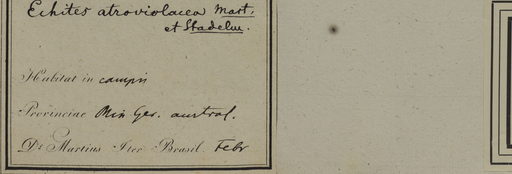 Echites atroviolacea Mart.
et Stadelm.
Habitat in campis
Provinciae Min Ger. austral.
Dr. Martius Iter Brasil. Febr